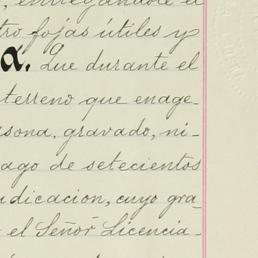 entregándole el
tro fojas útiles y
a. Que durante el
terreno que enage-
sona, gravado, ni-
ago de setecientos
udicacion, cuyo gra-
el Señor Licencia-